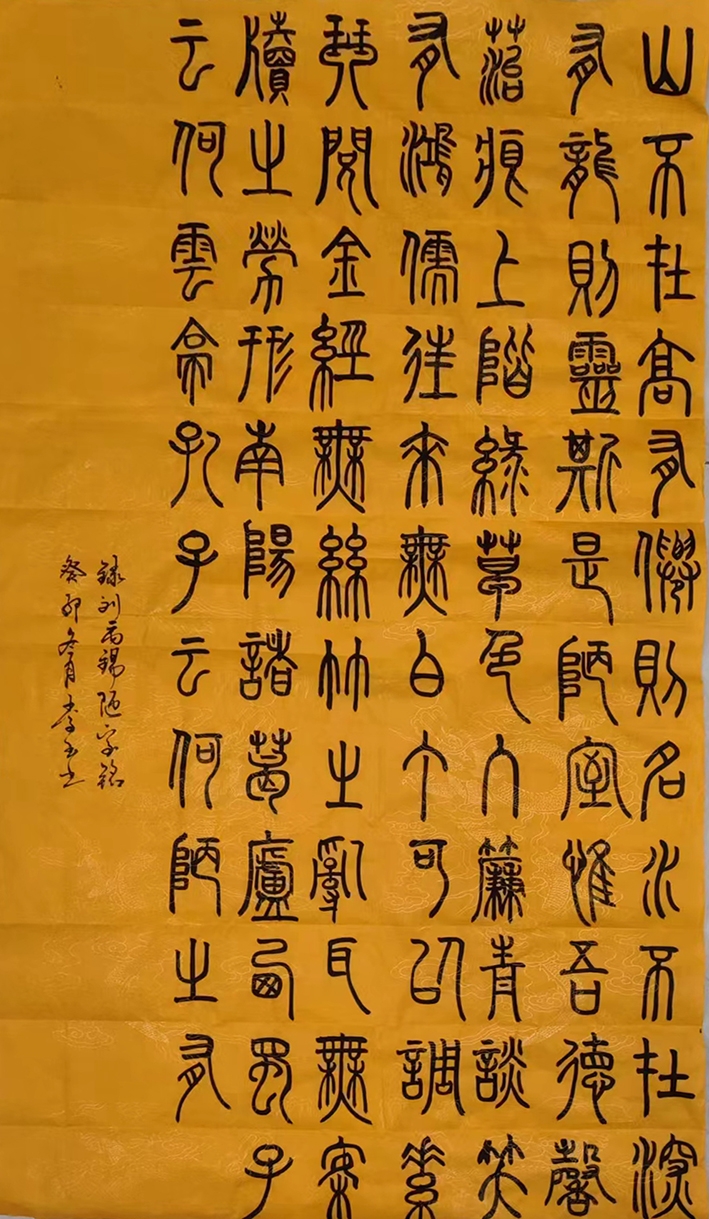 山不在高有僊則名水不在深
有龍則靈斯是陋室惟吾德馨
菭痕上階綠草色入簾青談笑
有鴻儒往來無白丁可以調素
琴閱金經無絲竹之亂耳無案
牘之勞形南陽諸葛廬西蜀子
云何雲亭孔子云何陋之有
録刘禹锡陋室铭
癸卯冬月李玉